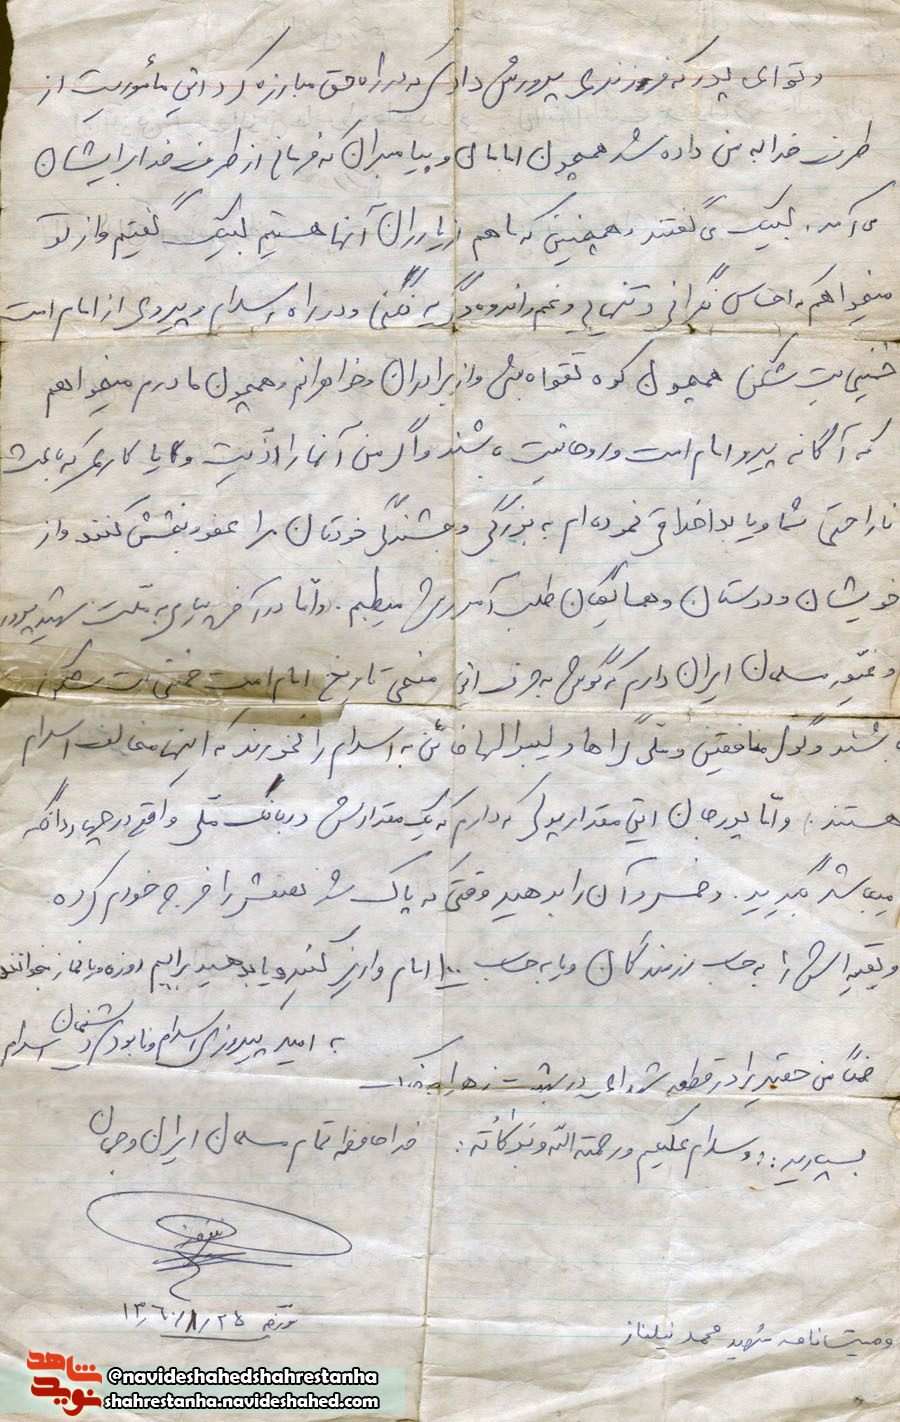 و تو ای پدر که فرزندی پرورش دادی که در راه حق مبارزه کرد این مأموریت از
طرف خدا به من داده شد همچون امامان و پیامبران که فرمانی از طرف خدا برایشان
می آمد، لبیک می گفتند و همچنین که ما هم از یاران آنها هستیم لبیک گفتیم و از تو
میخواهم که احساس نگرانی و تنهایی و غم و اندوه و گریه نکنی و در راه اسلام و پیروی از امام امت
خمینی بت شکن همچون کوه تقواه باش و از برادران و خواهرانم و همچون مادرم میخواهم
که آگانه پیرو امام امت و روحانیت باشند و اگر من آنها را اذیت و یا کاری که باعث
ناراحتی شما و یا بداخلاقی نموده ام به بزرگی و بخشندگی خودتان مرا عفو و بخشش کنند و از
خویشان و دوستان و همسایگان طلب آمرزش میطلبم. و اما در آخر پیامی به ملت شهیدپرور
و غیور مسلمان ایران دارم که گوش به حرف این منجی تاریخ امام امت خمینی بت شکن
باشند و گول منافقین و ملی گراها و لیبرالهای خائن به اسلام را نخورند که اینها مخالف اسلام
هستند. و اما پدر جان این مقدار پولی که دارم که یک مقدارش در بانک ملی واقع در چهاردانگه
میباشد بگیرید. و خمس آن را بدهید وقتی که پاک شد نصفش را خرج خودم کرده
و بقیه اش را به حساب رزمندگان و یا به حساب ۱۰۰ امام واریز کنید و یا بدهید برایم روزه و یا نماز بخوانند
به امید پیروزی اسلام و نابودی دشمنان اسلام
ضمناً من حقیر را در قطعه شهدای در بهشت زهرا به خاک
بسپارید: و سلام علیکم و رحمته الله و برکاته: خداحافظ تمام مسلمان ایران و جهان
مورخه ۱۳۶۰/۸/۲۵
وصیتنامه شهید محمد نیلناز
شاهد
نوید
@navideshahedshahrestanha
shahrestanha.navideshahed.com